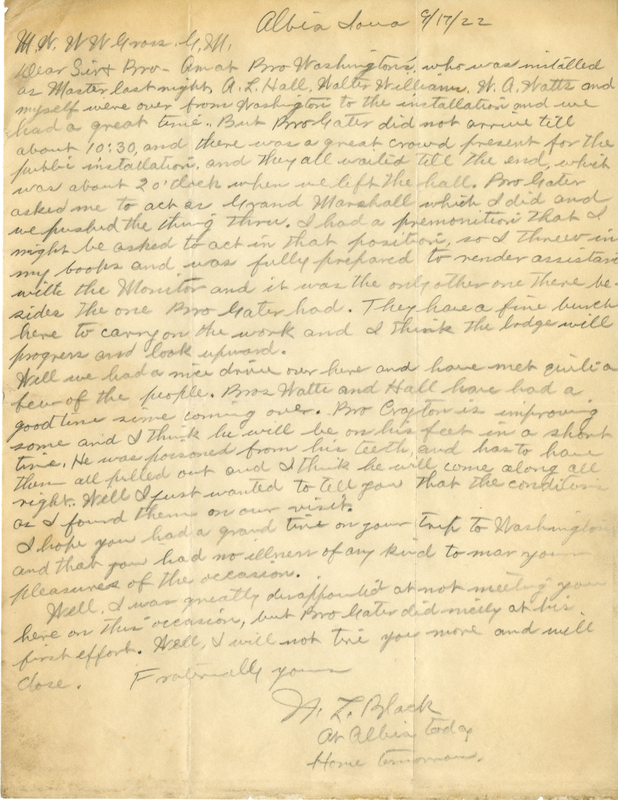 Albia Iowa 9/17/22
M.W. W W Gross. G.M.
Dear Sir & Bro - Am at Bro Washingtons, who was installed
as Master last night, A. L. Hall, Walter Williams, W. A. Watts and
myself were over from Washington to the installation and we
had a great time. But Bro Gater did not arrive till
about 10:30, and there was a great crowd present for the
public installation, and they all waited till the end, which
was about 2 o'clock when we left the hall. Bro Gater
asked me to act as Grand Marshall which I did and
we pushed the thing thru. I had a premonition that I
might be asked to act in that position, so I threw in
my books and was fully prepared to render assistan
with the Monitor and it was the only other one there be-
sides the one Bro Gater had. They have a fine bunch
here to carry on the work and I think the lodge will
progress and look upward.
Well we had a nice drive over here and have met quite a
few of the people. Bros Watts and Hall have had a
good time since coming over. Bro Crayton is improving
some and I think he will be on his feet in a short
time. He was poisoned from his teeth, and has to have
them all pulled out and I think he will come along all
right. Well I just wanted to tell you that the conditions
as I found them on our visit.
I hope you had a grand time on your trip to Washington
and that you had no illness of any kind to mar your
pleasures of the occasion.
Well, I was greatly disappointed at not meeting you
here on this occasion, but Bro Gater did nicely at his
first effort. Well, I will not tire you more and will
close. Fraternally yours
L. Black
At Albia today
Home tomorrow.